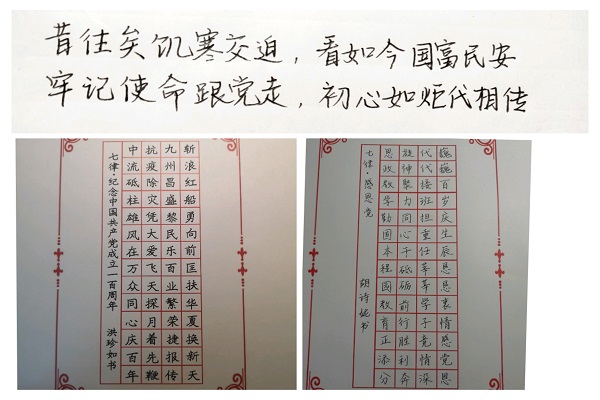 昔往矣饥寒交迫，看如今国富民安
牢记使命跟党走，初心如炬代相传
斩浪红船勇向前匡扶华夏换新天
九州昌盛黎民乐百业繁荣捷报传
抗疫除灾凭大爱飞天探月着先鞭
中流砥柱雄风在万众同心庆百年
七律·纪念中国共产党成立一百周年 洪珍如书
巍巍百岁庆生辰恩恩衷情感党恩
代代接班担重任莘莘学子竞情深
聚力同心干砥砺前行胜利奔
思政教学勤国本程国教育正添分
七律·感恩党 胡诗妮书